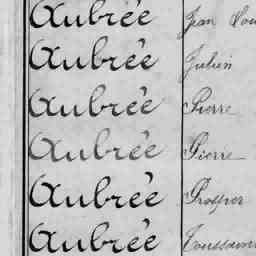 Aubrée Jean Lou
Aubrée Julien
Aubrée Pierre
Aubrée Pierre
Aubrée Prosper
Aubrée Toussaint